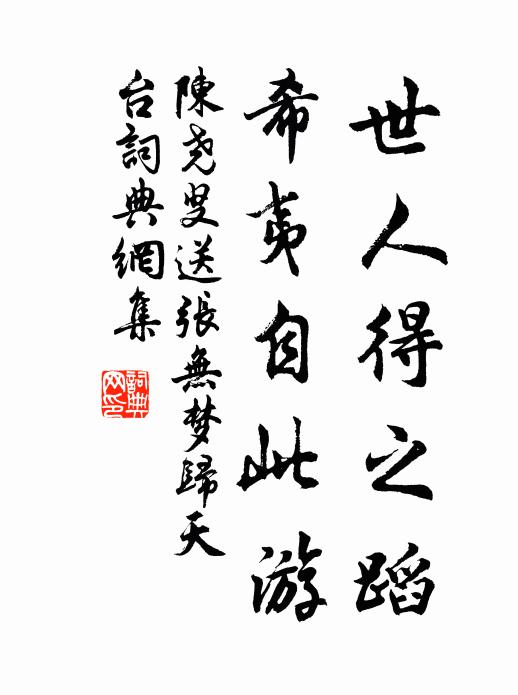 世人得之蹈
希夷自此游
陳堯叟送張無梦歸天
台詞典網集
詞典
网印